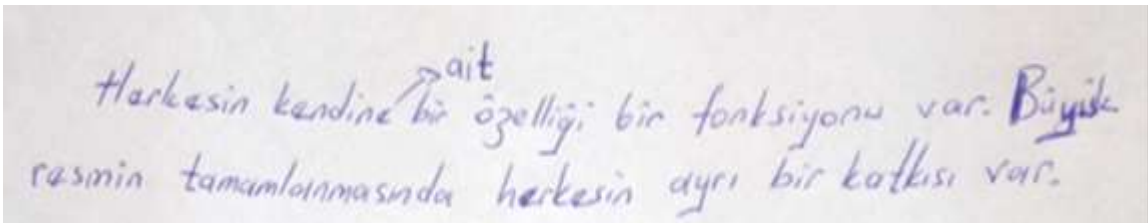 Herkesin kendine ait bir özelliği bir fonksiyonu var. Büyük
resmin tamamlanmasında herkesin ayrı bir katkısı var.